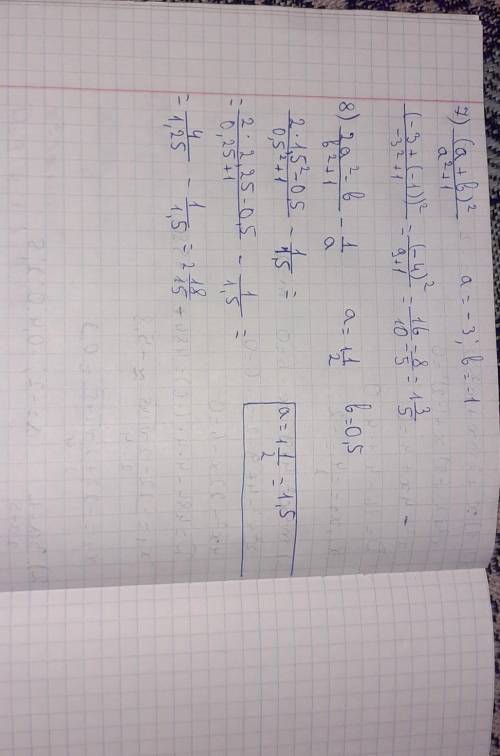 7) (a+b)²/(a²+1) a = -3; b = -1
(-3+(-1))²/(-3²+1) = (-4)²/(9+1) = 16/10 = 8/5 = 1 3/5
8) (2a²-b)/(b²+1) - 1/a a = 1 1/2 b = 0,5
(2·1,5²-0,5)/(0,5²+1) - 1/1,5 =
a = 1 1/2 = 1,5
= (2·2,25-0,5)/(0,25+1) - 1/1,5 =
= 4/1,25 - 1/1,5 = 2 18/15